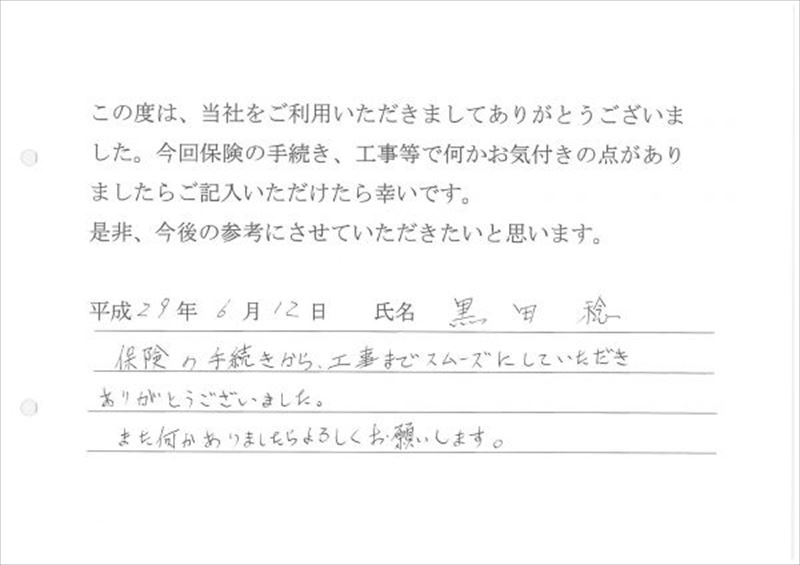 この度は、当社をご利用いただきましてありがとうございま
した。今回保険の手続き、工事等で何かお気付きの点があり
ましたらご記入いただけたら幸いです。
是非、今後の参考にさせていただきたいと思います。
平成29年 6月12日 氏名 黒田 稔
保険の手続きから、工事までスムーズにしていただき
ありがとうございました。
また何かありましたらよろしくお願いします。